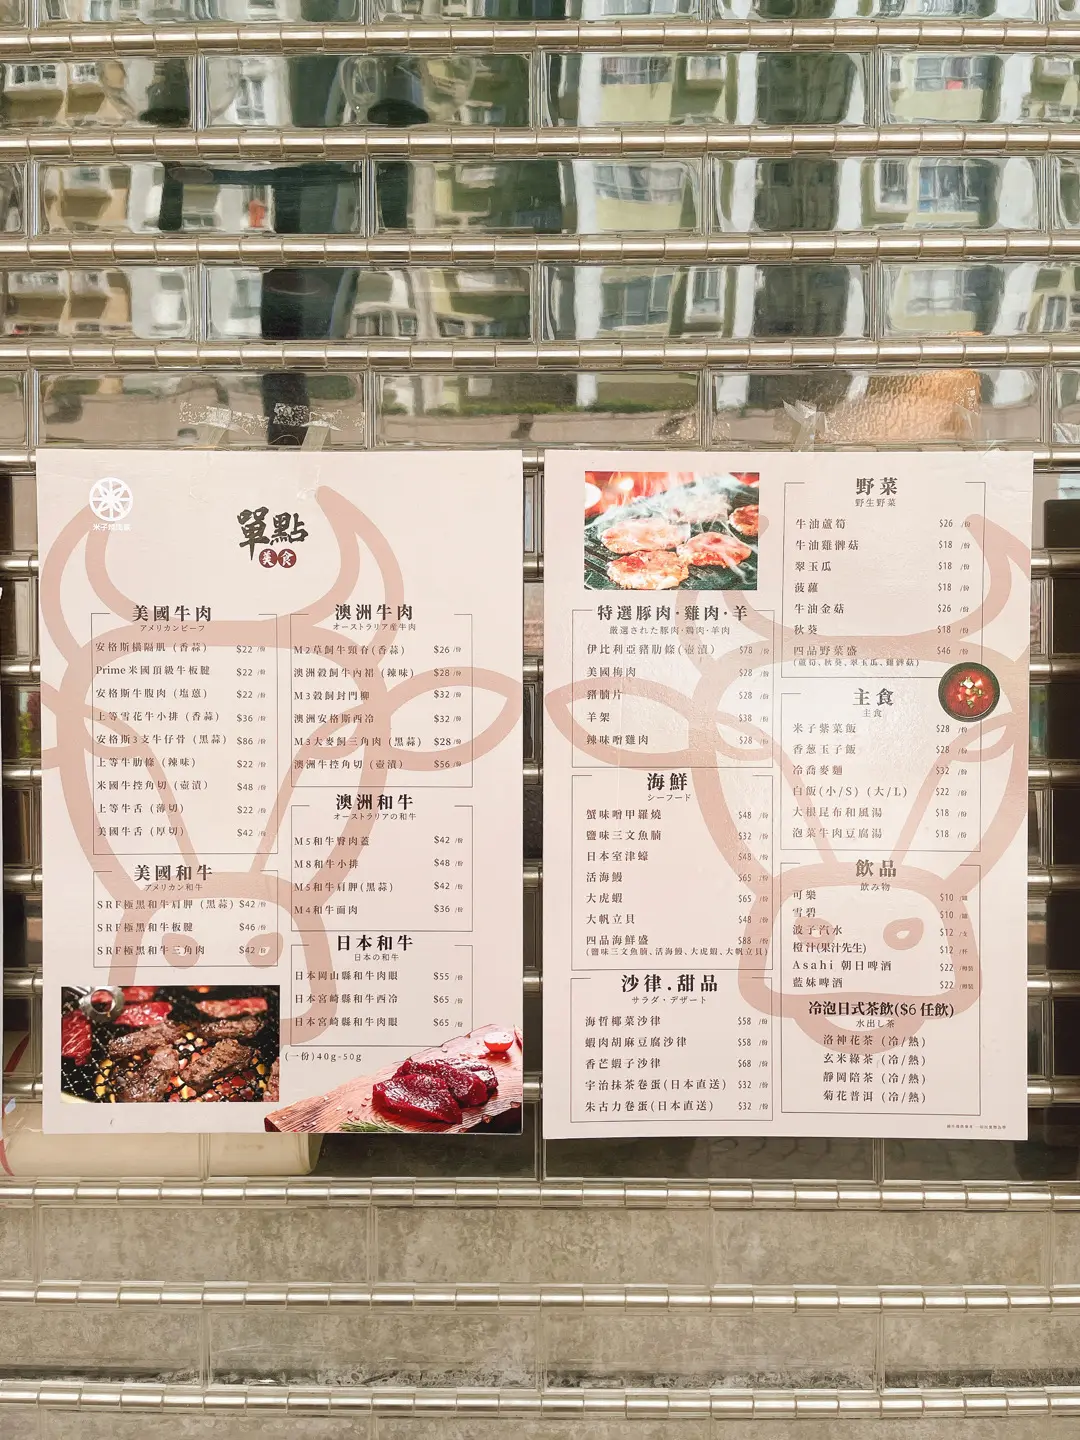 單點
美食
美國牛肉
アメリカンビーフ
安格斯橫隔肌 (香蒜) $22 /份
Prime米國頂級牛板腱 $22 /份
安格斯牛腹肉 (塩蔥) $22 /份
上等雪花牛小排 (香蒜) $36 /份
安格斯3支牛仔骨 (黑蒜) $86 /份
上等牛肋條 (辣味) $22 /份
米國牛控角切 (壺漬) $48 /份
上等牛舌 (薄切) $22 /份
美國牛舌 (厚切) $42 /份
美國和牛
アメリカン和牛
SRF極黑和牛肩胛 (黑蒜) $42 /份
SRF極黑和牛板腱 $46 /份
SRF極黑和牛三角肉 $42 /份
澳洲牛肉
オーストラリア産牛肉
M2草飼牛頸脊(香蒜) $26 /份
澳洲穀飼牛內裙 (辣味) $28 /份
M3穀飼封門柳 $32 /份
澳洲安格斯西冷 $32 /份
M3大麥飼三角肉 (黑蒜) $28 /份
澳洲牛控角切 (壺漬) $56 /份
澳洲和牛
オーストラリアの和牛
M5和牛臀肉蓋 $42 /份
M8和牛小排 $48 /份
M5和牛肩胛(黑蒜) $42 /份
M4和牛面肉 $36 /份
日本和牛
日本の和牛
日本岡山縣和牛肉眼 $55 /份
日本宮崎縣和牛西冷 $65 /份
日本宮崎縣和牛肉眼 $65 /份
(一份)40g-50g
特選豚肉·雞肉·羊
厳選された豚肉·鶏肉·羊肉
伊比利亞豬肋條(壺漬) $78 /份
美國梅肉 $28 /份
豬腩片 $28 /份
羊架 $38 /份
辣味噌雞肉 $28 /份
海鮮
シーフード
蟹味噌甲羅燒 $48 /份
鹽味三文魚腩 $32 /份
日本室津蠔 $48 /份
活海鰻 $65 /份
大虎蝦 $65 /份
大帆立貝 $48 /份
四品海鮮盛 $88 /份
(鹽味三文魚腩、活海鰻、大虎蝦、大帆立貝)
沙律.甜品
サラダ·デザート
海哲椰菜沙律 $58 /份
蝦肉胡麻豆腐沙律 $58 /份
香芒蝦子沙律 $68 /份
宇治抹茶卷蛋(日本直送) $32 /份
朱古力卷蛋(日本直送) $32 /份
野菜
野生野菜
牛油蘆筍 $26 /份
牛油雞髀菇 $18 /份
翠玉瓜 $18 /份
菠蘿 $18 /份
牛油金菇 $26 /份
秋葵 $18 /份
四品野菜盛 $46 /份
(蘆筍、秋葵、翠玉瓜、雞髀菇)
主食
主食
米子紫菜飯 $28 /份
香葱玉子飯 $28 /份
冷喬麥麵 $32 /份
白飯(小/S) (大/L) $22 /份
大根昆布和風湯 $18 /份
泡菜牛肉豆腐湯 $18 /份
飲品
飲み物
可樂 $10 /罐
雪碧 $10 /罐
波子汽水 $12 /支
橙汁(果汁先生) $12 /杯
Asahi 朝日啤酒 $22
藍妹啤酒 $22
冷泡日式茶飲($6 任飲)
水出し茶
洛神花茶 (冷/熱)
玄米綠茶 (冷/熱)
靜岡焙茶 (冷/熱)
菊花普洱 (冷/熱)